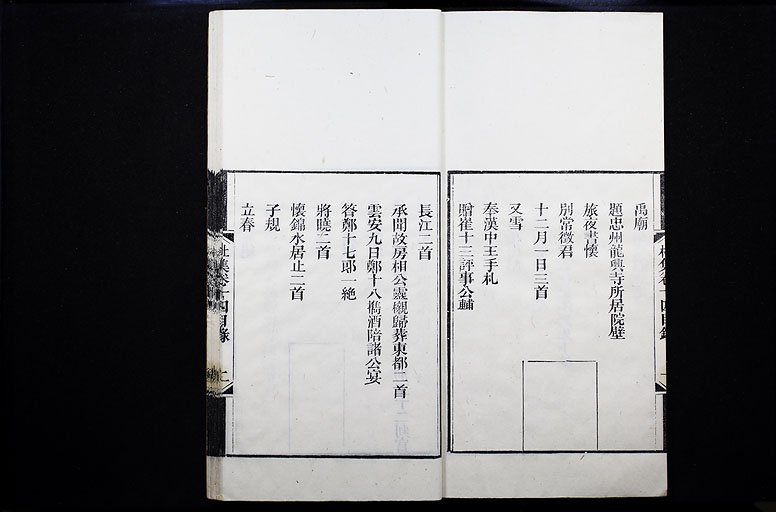 禹廟
題忠州龍興寺所居院壁
旅夜書懷
別常徵君
十二月一日三首
又雪
奉漢中王手札
贈崔十三評事公輔
長江二首
承聞故房相公靈櫬歸葬東都二首
雲安九日鄭十八攜酒陪諸公宴
答鄭十七郎一絶
將曉二首
懷錦水居止二首
子規
立春
杜集卷十四目錄